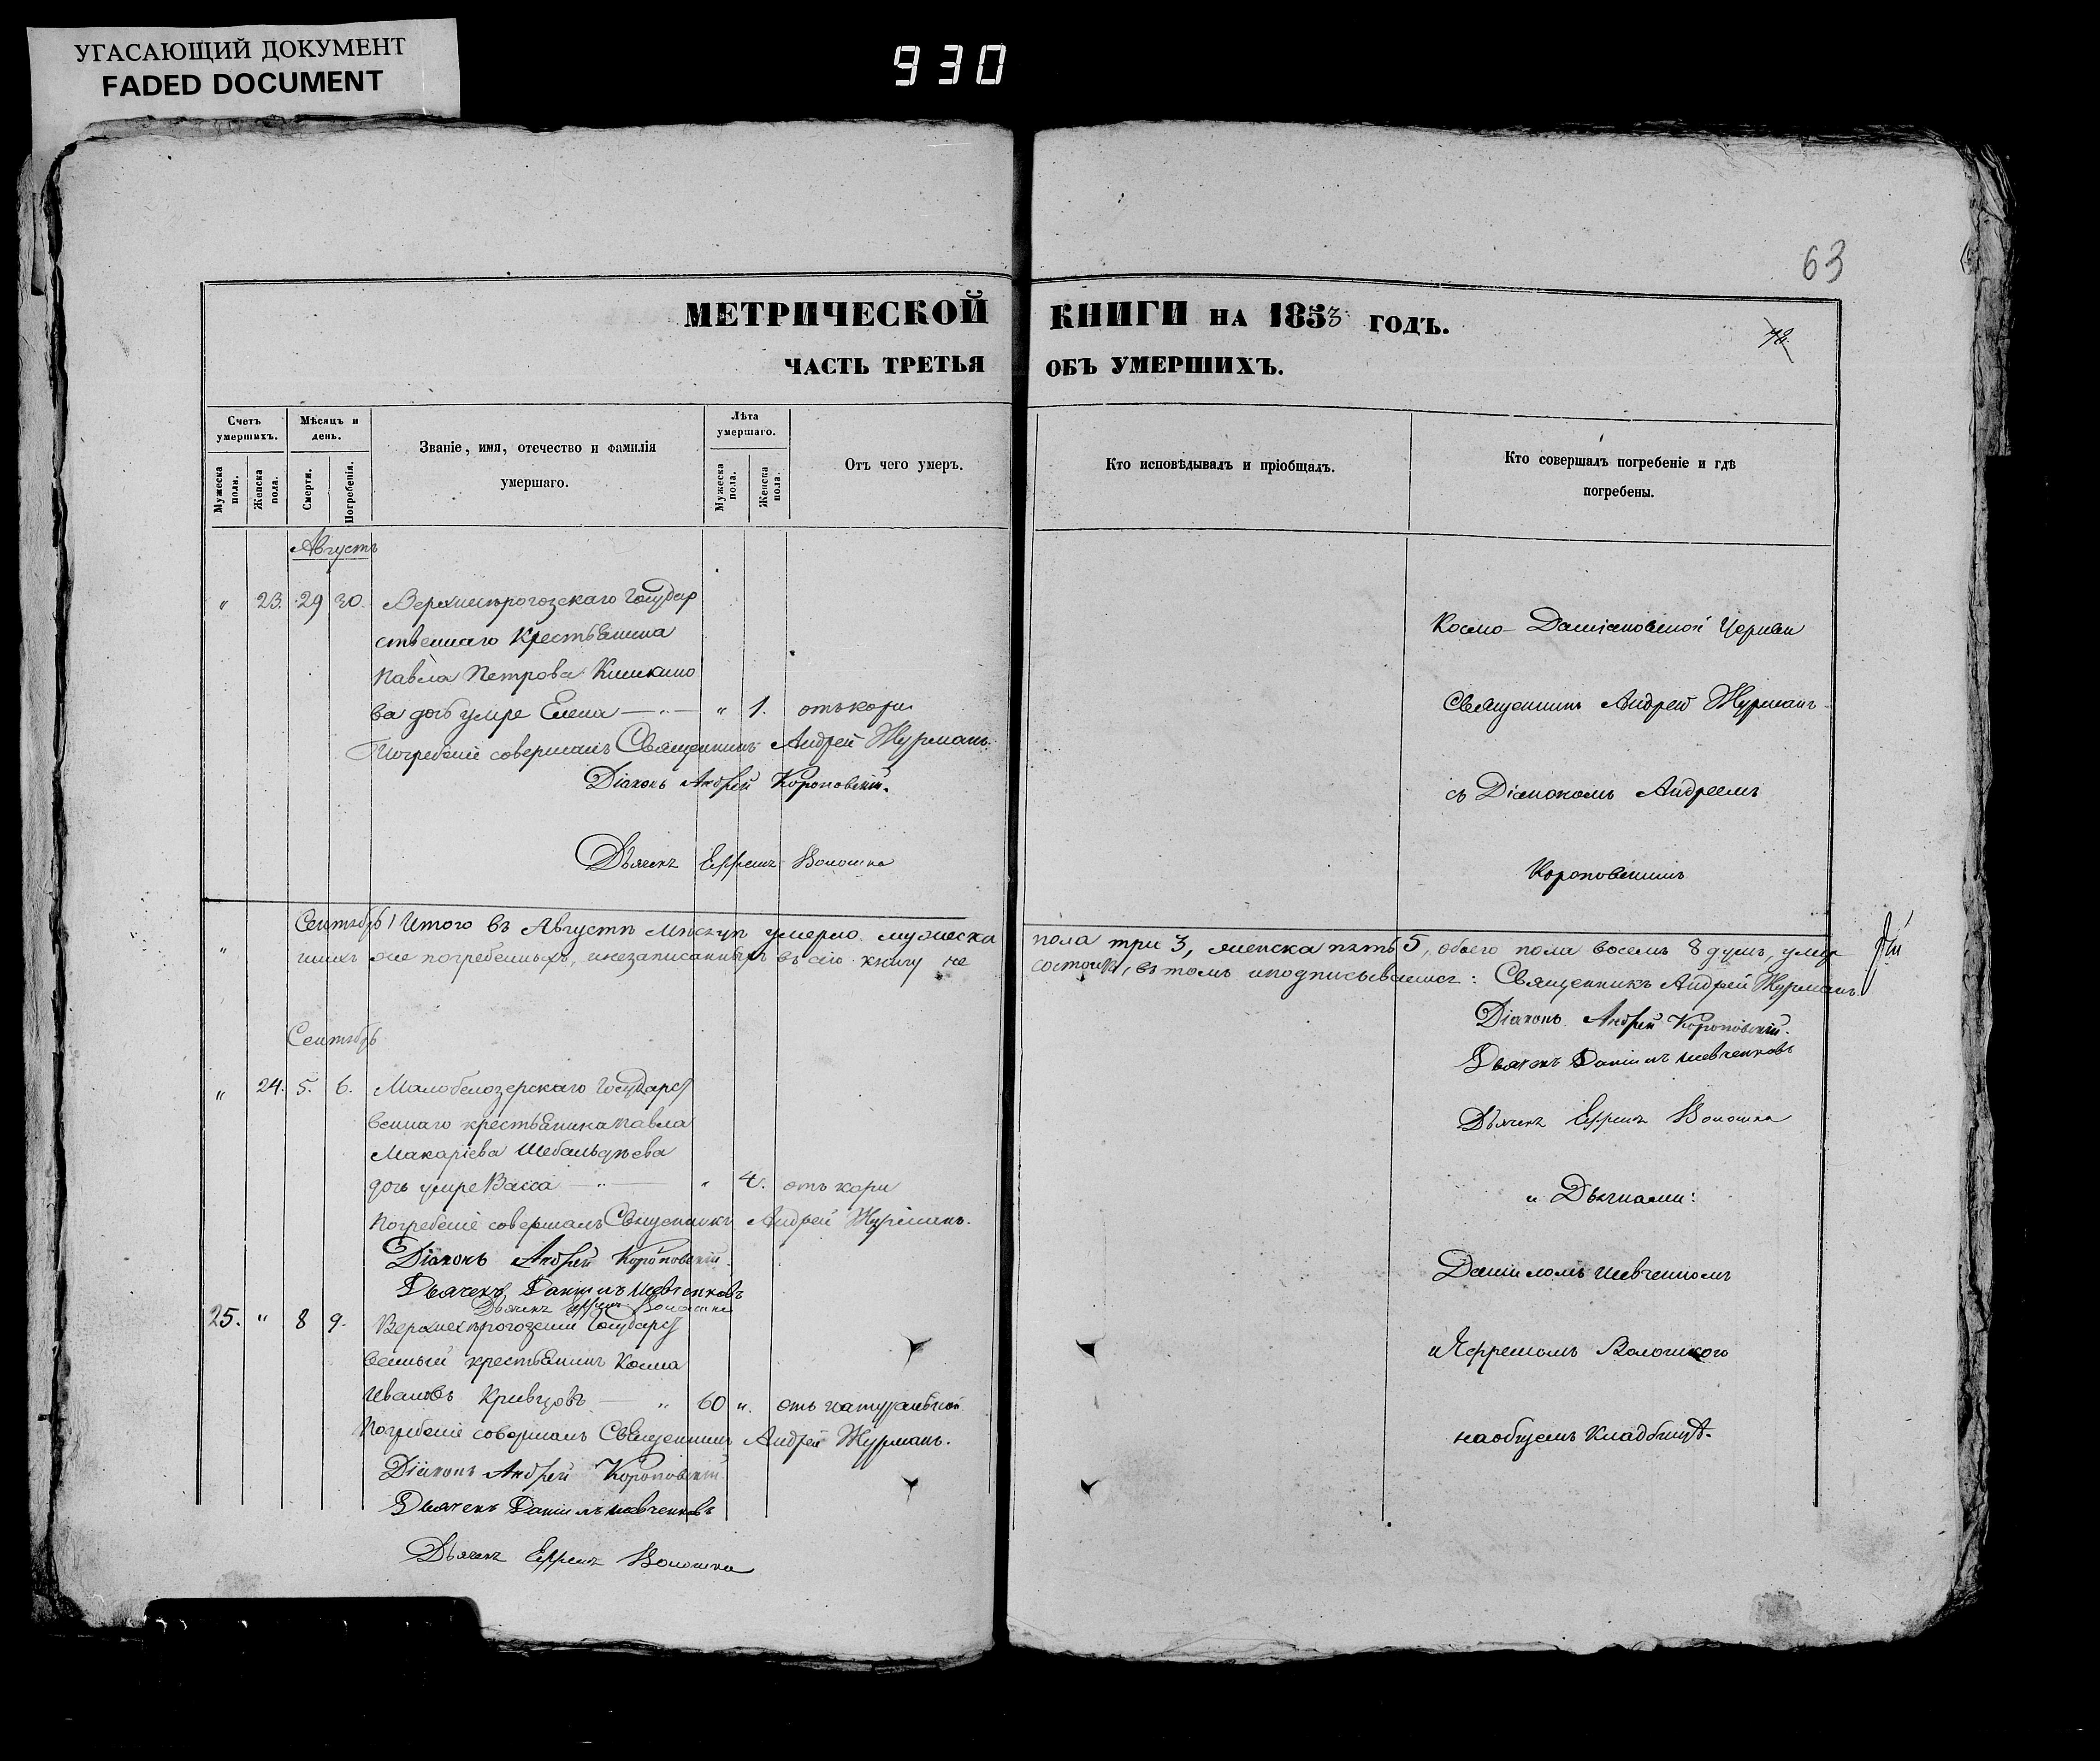 УГАСАЮЩИЙ ДОКУМЕНТ
FADED DOCUMENT
930
63
МЕТРИЧЕСКОЙ КНИГИ НА 1853 ГОДЪ.
78.
ЧАСТЬ ТРЕТЬЯ ОБЪ УМЕРШИХЪ.
Счетъ умершихъ.
Мужеска пола.
Женска пола.
Мѣсяцъ и день.
Смерти.
Погребенія.
Званіе, имя, отечество и фамилія
умершаго.
Лѣта умершаго.
Мужеска пола.
Женска пола.
Отъ чего умеръ.
Кто исповѣдывалъ и пріобщалъ.
Кто совершалъ погребеніе и гдѣ
погребены.
Августъ
" 23. 29 30. Верхнерогозскаго Государ
ственнаго Крестьянина
Павла Петрова
ва дочь умре Елена — " — " 1. отъ кори
Погребеніе совершалъ Священникъ Андрей Журманъ.
Діаконъ Андрей Короповскій.
Дьячекъ Ефремъ Волошка
Сентябрь Итого въ Августѣ Мѣсяцѣ умерло мужеска пола три 3, женска пять 5, обоего пола восемь 8 душъ, умер
" шихъ же погребенныхъ, и незаписанныхъ въ сію книгу не состоитъ, въ томъ и подписываемся: Священникъ Андрей Журманъ
Діаконъ Андрей Короповскій.
Дьячекъ Даніилъ Шевченковъ
Дьячекъ Ефремъ Волошка
Сентябрь
" 24. 5. 6. Малобелозерскаго Государст
веннаго крестьянина Павла
Макаріева Шебальдѣева
дочь умре Васса — " — " 4. отъ кори
Погребеніе совершалъ Священникъ Андрей Журманъ.
Діаконъ Андрей Короповскій
Дьячекъ Даніилъ Шевченковъ
Дьячекъ Ефремъ Волошка
25. " 8 9. Государст
венный крестьянинъ Косма
Ивановъ Кривцовъ — " 60 ". отъ натуральной
Погребеніе совершалъ Священникъ Андрей Журманъ.
Діаконъ Андрей Короповскій
Дьячекъ Даніилъ Шевченковъ
Дьячекъ Ефремъ Волошка
Космо-Даміановской Церкви
Священникъ Андрей Журманъ
съ Діакономъ Андреемъ
Короповскимъ
и Дьячками:
Даніиломъ Шевченкомъ
и Ефремомъ Волошкого
на общемъ кладбищѣ.